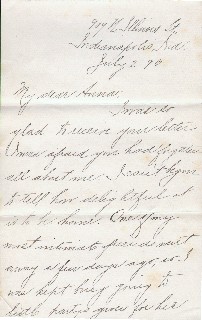 907 N. Illinois St.
Indianapolis, Ind.
July 2 90
My dear Anna:
I was so
glad to receive your letter
I was afraid you had forgotten
all about me. I can't begin
to tell how delightful it
is to be home. One of my
most intimate friends went
away a few days ago, so I
was kept busy going to
little partys given for her